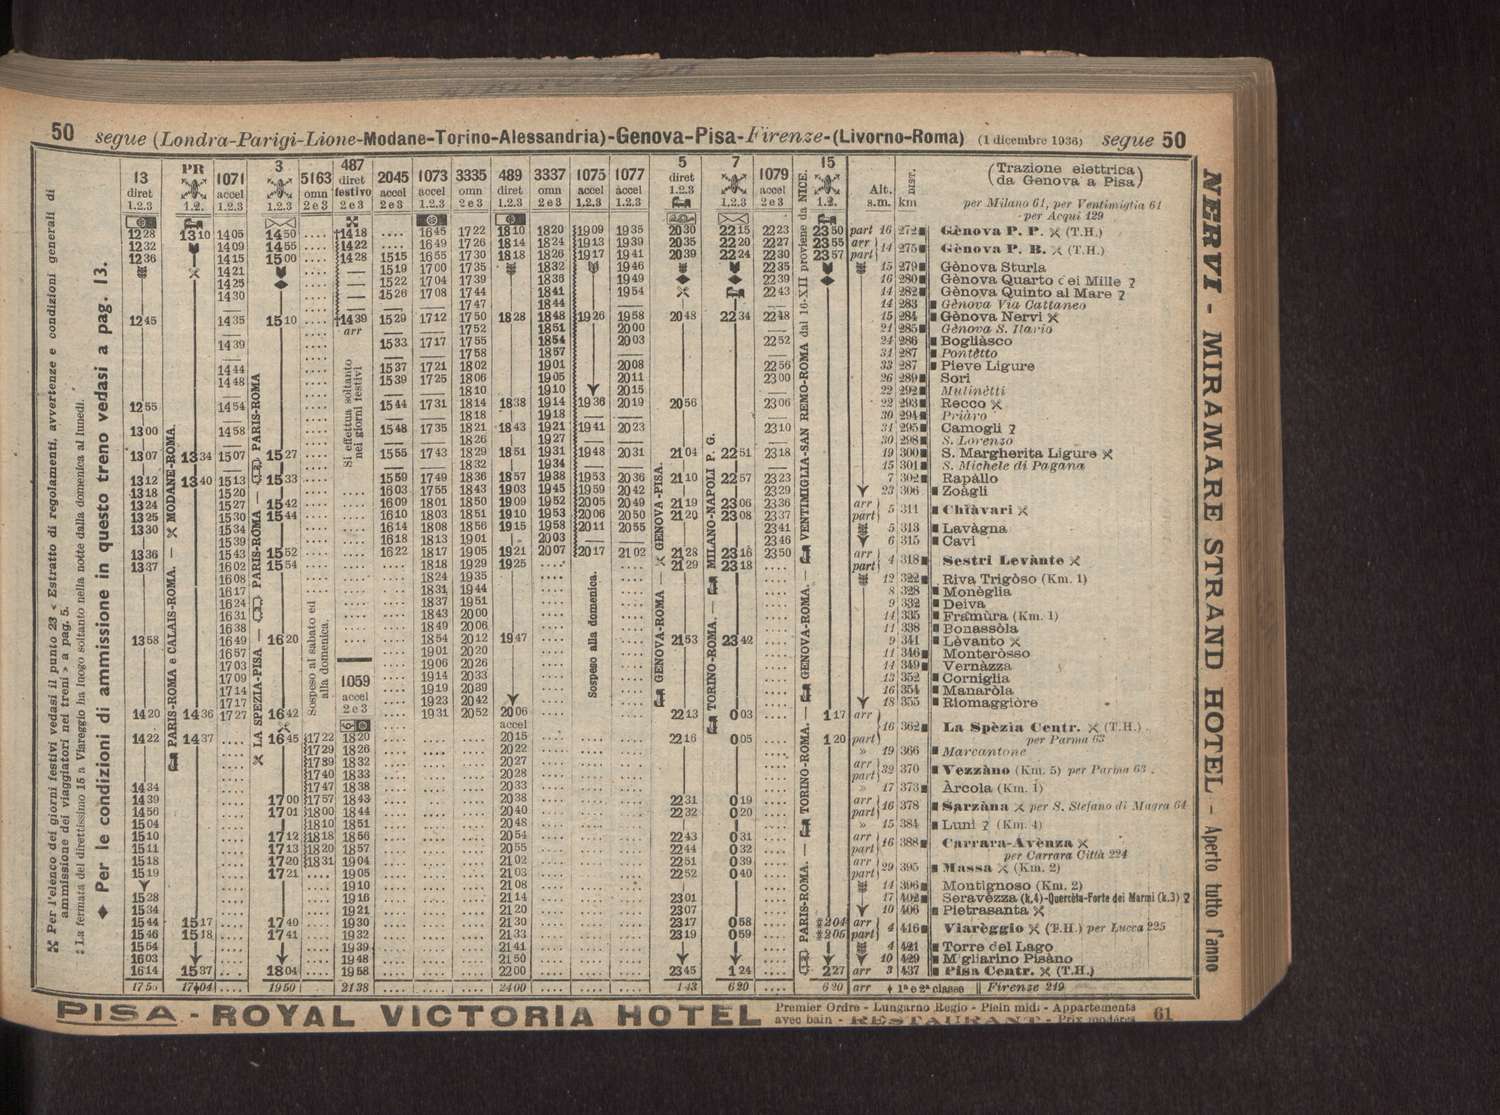 50 segue (Londra-Parigi-Lione-Modane-Torino-Alessandria)-Genova-Pisa-Firenze-(Livorno-Roma) (1 dicembre 1936) segue 50
13 PR 1071 3 5163 487 2045 1073 3335 489 3337 1075 1077 5 7 1079 15
diret accel omn diret accel accel omn diret omn accel accel diret accel
festivo
1.2.3 1.2. 1.2.3 1.2.3 2 e 3 2 e 3 2 e 3 1.2.3 2 e 3 1.2.3 2 e 3 1.2.3 1.2.3 1.2.3 1.2.3 2 e 3 1.2.
Alt. s.m. DIST. km
(Trazione elettrica da Genova a Pisa)
per Milano 61, per Ventimiglia 61
per Acqui 129
12 28 13 10 14 05 14 50 .... †14 18 .... 16 45 17 22 18 10 18 20 19 09 19 35 20 30 22 15 22 23 23 50 part 16 272 Gènova P. P. (T.H.)
12 32 14 09 14 55 .... 14 22 .... 16 49 17 26 18 14 18 24 19 13 19 39 20 35 22 20 22 27 23 55 arr
12 36 14 15 15 00 .... 14 28 15 15 16 55 17 30 18 18 18 26 19 17 19 41 20 39 22 24 22 30 23 57 part 14 275 Gènova P. B. (T.H.)
14 21 15 19 17 00 17 35 18 32 19 46 22 35 15 279 Gènova Sturla
14 25 15 22 17 04 17 39 18 36 19 49 22 39 16 280 Gènova Quarto dei Mille ?
14 30 15 26 17 08 17 44 18 41 19 54 22 43 14 282 Gènova Quinto al Mare ?
17 47 18 44 14 283 Gènova Via Cattaneo
12 45 14 35 15 10 .... †14 39 15 29 17 12 17 50 18 28 18 48 19 26 19 58 20 48 22 34 22 48 15 284 Gènova Nervi
arr 17 52 18 51 20 00 21 285 Gènova S. Ilario
14 39 15 33 17 17 17 55 18 54 20 03 22 52 24 286 Bogliàsco
17 58 18 57 31 287 Pontètto
14 44 15 37 17 21 18 02 19 01 20 08 22 56 33 287 Pieve Ligure
14 48 15 39 17 25 18 06 19 05 20 11 23 00 26 289 Sori
18 10 19 10 20 15 22 292 Mulinètti
12 55 14 54 15 44 17 31 18 14 18 38 19 14 19 36 20 19 20 56 23 06 22 293 Recco
18 18 19 18 30 294 Priàro
13 00 14 58 15 48 17 35 18 21 18 43 19 21 19 41 20 23 23 10 31 295 Camogli ?
18 26 19 27 30 298 S. Lorenzo
13 07 13 34 15 07 15 27 15 55 17 43 18 29 18 51 19 31 19 48 20 31 21 04 22 51 23 18 19 300 S. Margherita Ligure
18 32 19 34 15 301 S. Michele di Pagana
13 12 13 40 15 13 15 33 15 59 17 49 18 36 18 57 19 38 19 53 20 36 21 10 22 57 23 23 7 302 Rapàllo
13 18 15 20 16 03 17 55 18 43 19 03 19 45 19 59 20 42 23 29 23 306 Zoàgli
13 24 15 27 15 42 16 09 18 01 18 50 19 09 19 52 20 05 20 49 21 19 23 06 23 36 arr
13 25 15 30 15 44 16 10 18 03 18 51 19 10 19 53 20 06 20 50 21 20 23 08 23 37 part 5 311 Chiàvari
13 30 15 34 16 14 18 08 18 56 19 15 19 58 20 11 20 55 23 41 5 313 Lavàgna
15 39 16 18 18 13 19 01 20 03 23 46 6 315 Cavi
13 36 15 43 15 52 16 22 18 17 19 05 19 21 20 07 20 17 21 02 21 28 23 16 23 50 arr
13 37 16 02 15 54 18 18 19 29 19 25 21 29 23 18 part 4 318 Sestri Levànte
16 08 18 24 19 35 12 322 Riva Trigòso (Km. 1)
16 17 18 31 19 44 8 328 Monèglia
16 24 18 37 19 51 9 332 Deiva
16 31 18 43 20 00 14 335 Framùra (Km. 1)
16 38 18 49 20 06 11 338 Bonassòla
13 58 16 49 16 20 18 54 20 12 19 47 21 53 23 42 9 341 Lèvanto
16 57 19 01 20 20 11 346 Monteròsso
17 03 19 06 20 26 14 349 Vernàzza
17 09 19 14 20 33 13 352 Corniglia
17 14 19 19 20 39 16 354 Manaròla
17 17 19 23 20 42 18 355 Riomaggiòre
14 20 14 36 17 27 16 42 19 31 20 52 20 06 22 13 0 03 1 17 arr
1059 accel 2 e 3
accel
16 362 La Spèzia Centr. (T.H.)
per Parma 63
14 22 14 37 .... 16 45 17 22 18 20 20 15 22 16 0 05 1 20 part
17 29 18 26 20 22 » 19 366 Marcantone
17 39 18 32 20 27 arr
17 40 18 33 20 28 part 32 370 Vezzàno (Km. 5) per Parma 63
14 34 17 47 18 38 20 33 » 17 373 Àrcola (Km. 1)
14 39 17 00 17 57 18 43 20 38 22 31 0 19 arr
14 56 17 01 18 00 18 44 20 40 22 32 0 20 part 16 378 Sarzàna per S. Stefano di Magra 64
15 04 18 10 18 51 20 48 » 15 384 Luni ? (Km. 4)
15 10 17 12 18 18 18 56 20 54 22 43 0 31 arr
15 11 17 13 18 20 18 57 20 55 22 44 0 32 part 16 388 Carrara-Àvènza
per Carrara Città 224
15 18 17 20 18 31 19 04 21 02 22 51 0 39 arr
15 19 17 21 19 05 21 03 22 52 0 40 part 29 395 Massa (Km. 2)
19 10 21 08 14 396 Montignoso (Km. 2)
15 28 19 16 21 14 23 01 17 402 Seravèzza (k.4)-Quercèta-Forte dei Marmi (k.3) ?
15 34 19 21 21 20 23 07 10 406 Pietrasanta
15 44 15 17 17 40 19 30 21 30 23 17 0 58 2 04 arr
15 46 15 18 17 41 19 32 21 33 23 19 0 59 2 05 part 4 416 Viarèggio (T.H.) per Lucca 225
15 54 19 39 21 41 4 421 Torre del Lago
16 03 19 48 21 50 10 429 Migliarino Pisàno
16 14 15 37 18 04 19 58 22 00 23 45 1 24 2 27 arr 3 437 Pisa Centr. (T.H.)
17 50 17 04 19 50 21 38 24 00 1 43 6 20 6 20 arr 1ª e 2ª classe || Firenze 219
Per l'elenco dei giorni festivi vedasi il punto 23 < Estratto di regolamenti, avvertenze e condizioni generali di
ammissione dei viaggiatori nei treni > a pag. 5.
La fermata del direttissimo 15 a Viareggio ha luogo soltanto nella notte dalla domenica al lunedì.
◆ Per le condizioni di ammissione in questo treno vedasi a pag. 13.
PARIS-ROMA e CALAIS-ROMA. — MODANE-ROMA.
LA SPEZIA-PISA — PARIS-ROMA — PARIS-ROMA
Sospeso al sabato ed alla domenica.
Si effettua soltanto nei giorni festivi
Sospeso alla domenica.
GENOVA-ROMA — GENOVA-PISA.
TORINO-ROMA. — MILANO-NAPOLI P. G.
PARIS-ROMA. — TORINO-ROMA. — GENOVA-ROMA. — VENTIMIGLIA-SAN REMO-ROMA dal 16-XII proviene da NICE.
NERVI - MIRAMARE STRAND HOTEL - Aperto tutto l'anno
PISA - ROYAL VICTORIA HOTEL Premier Ordre - Lungarno Regio - Plein midi - Appartements
avec bain - RESTAURANT - Prix modérés 61